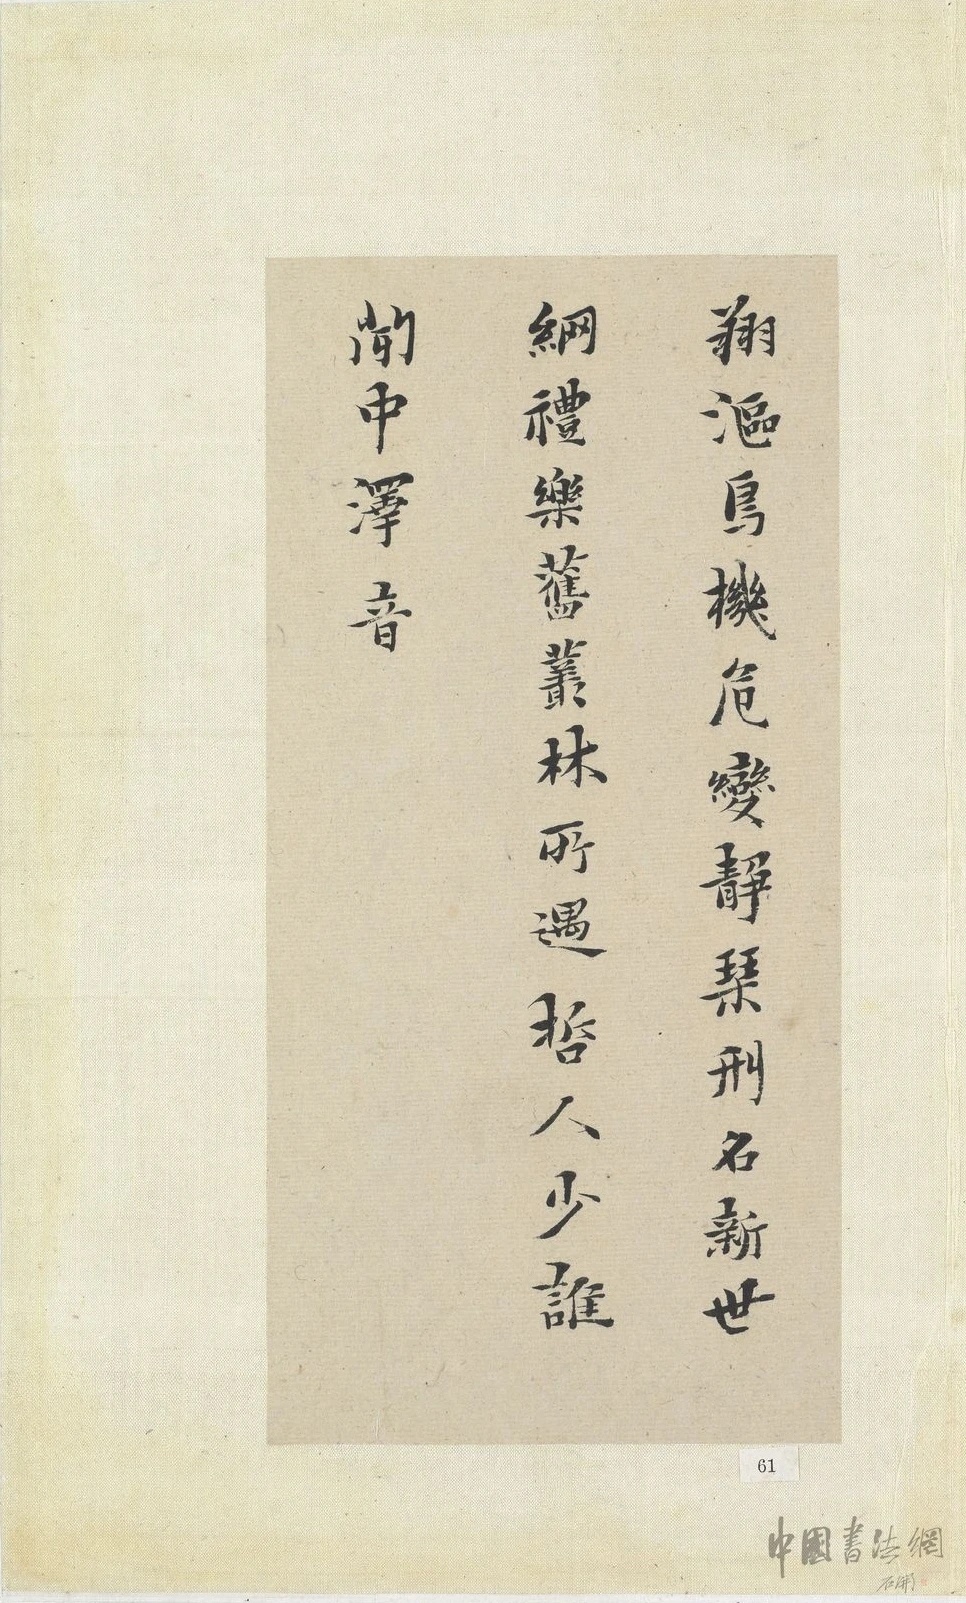 翔漚鳥機危變靜琹刑名新世
網禮樂舊叢林所遇哲人少誰
聞中澤音
61
中國書法網